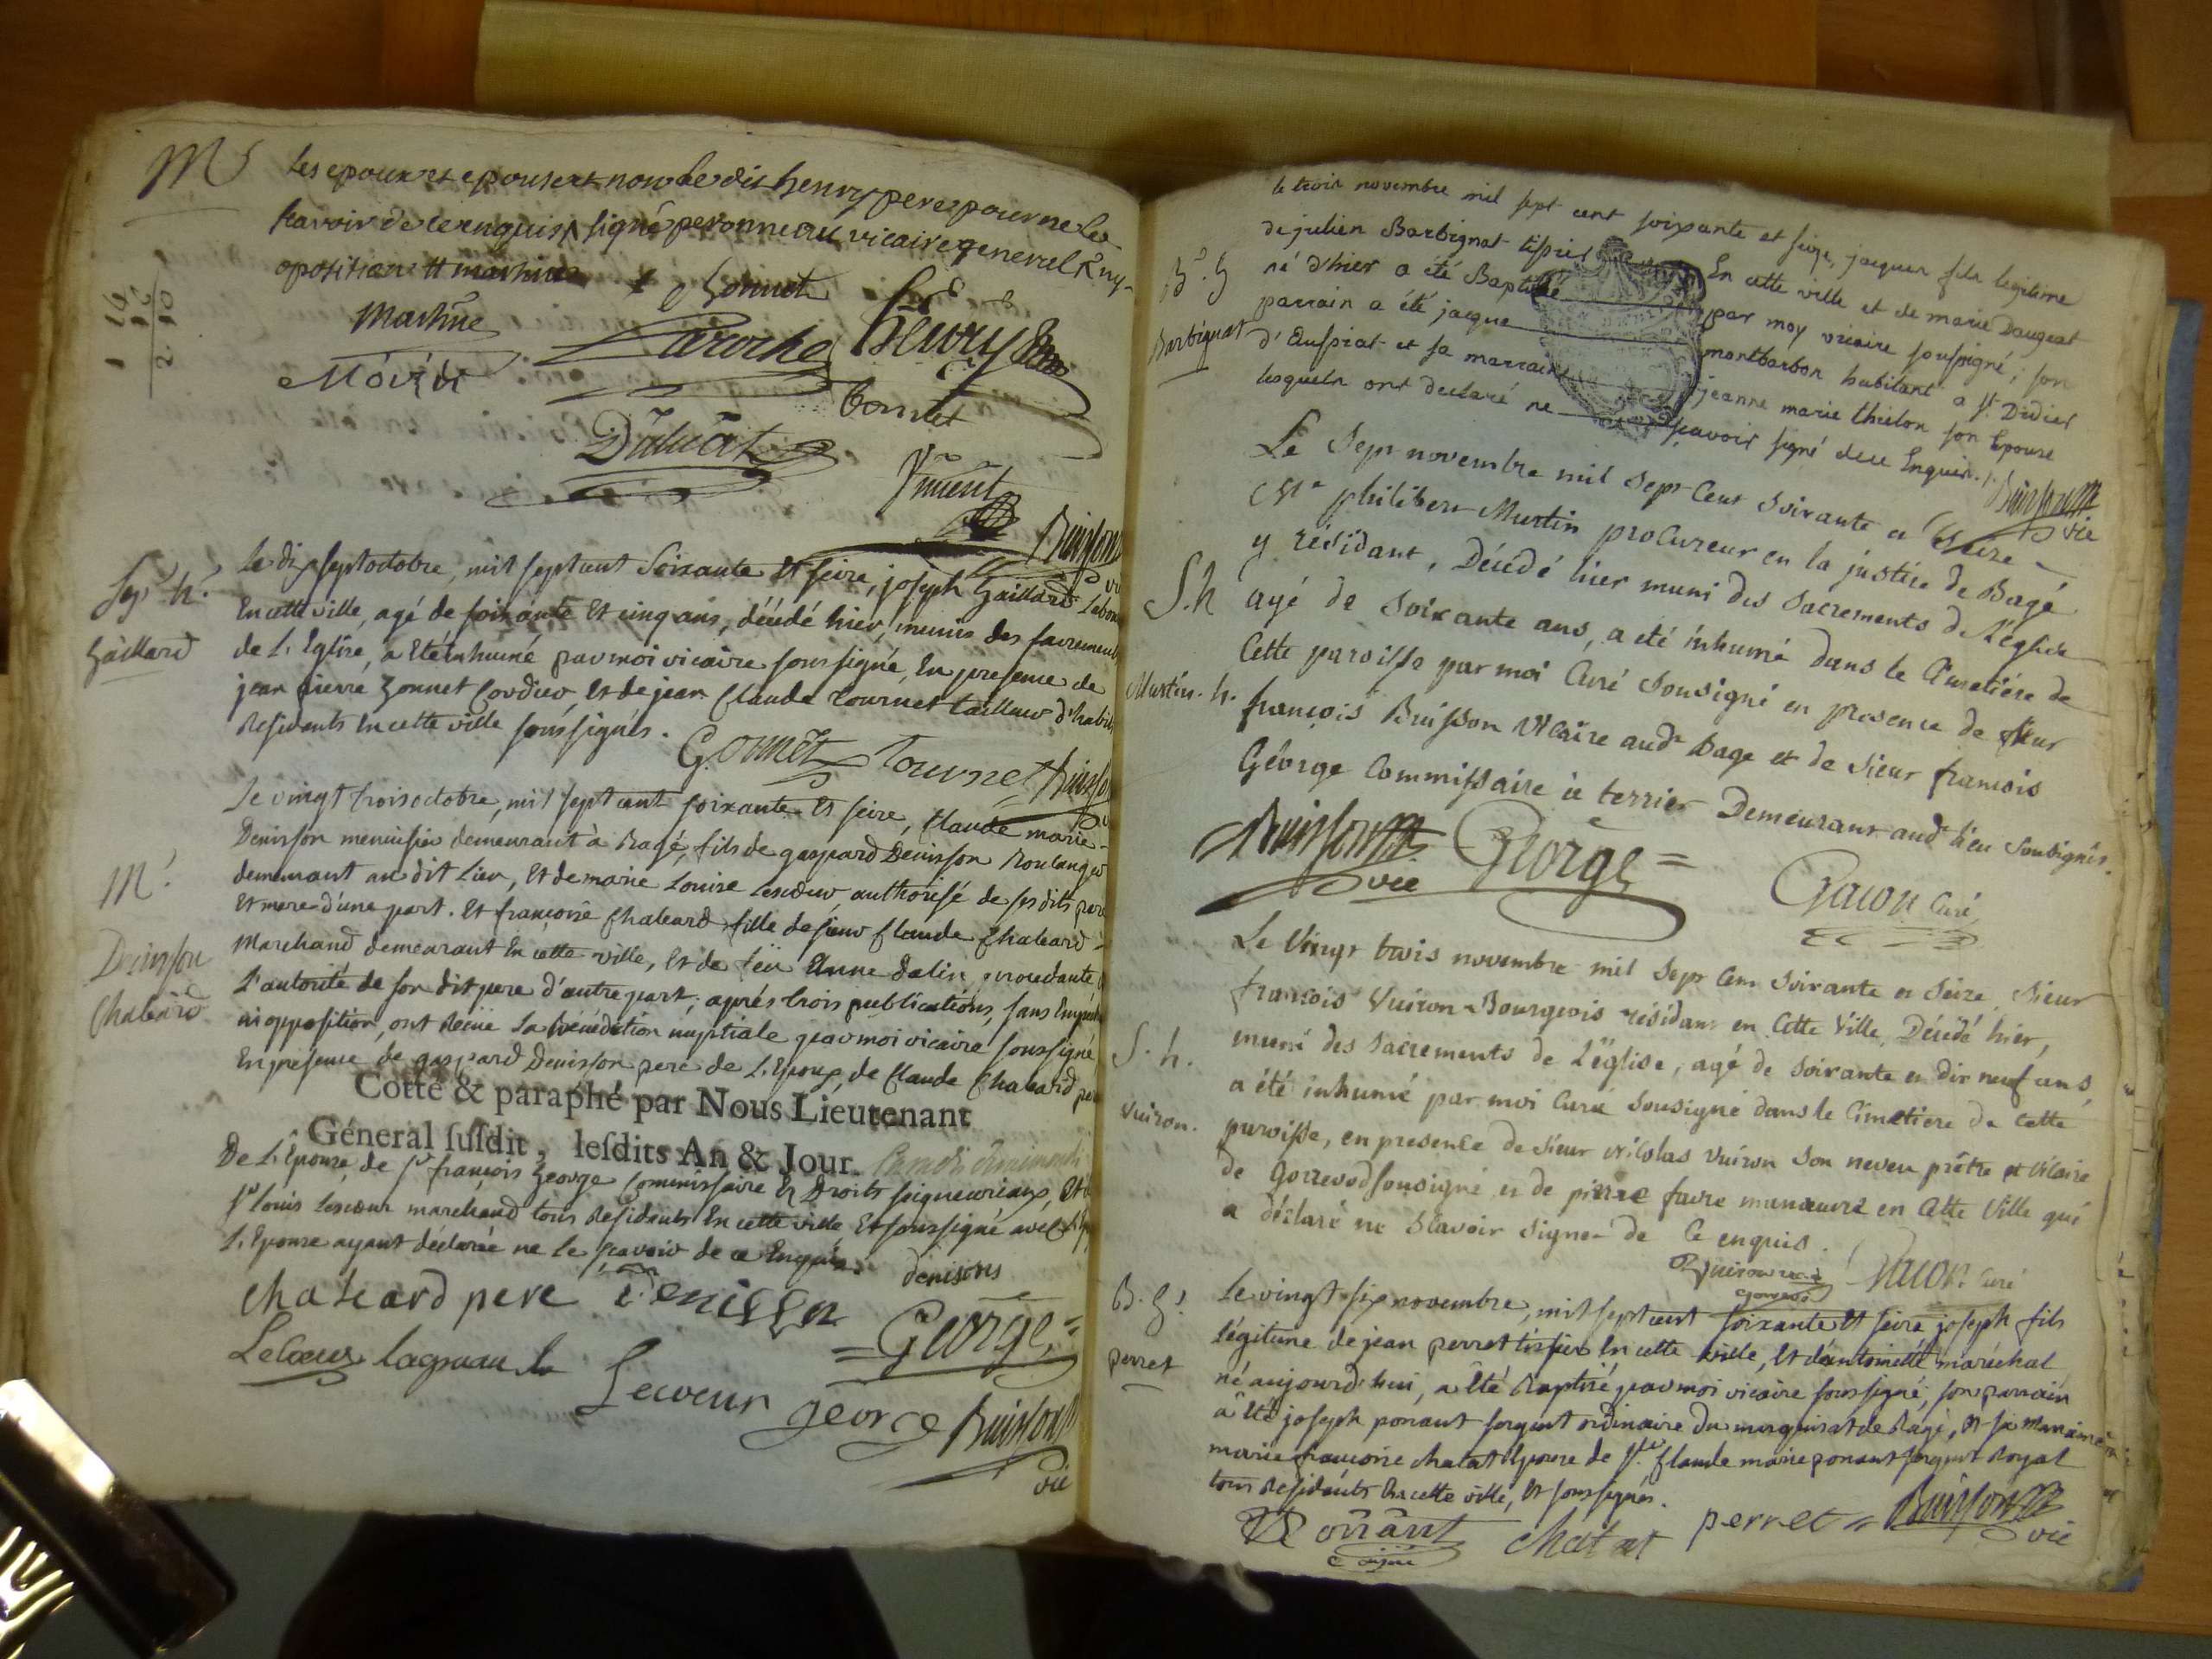 Ms
les epoux et epouse et non le dit henry pere pour ne le
scavoir de ce enquis signé peronneau vicaire general
oposition
1 16
2. 10
Gonnet
Laroche henry
Tournet
Vincent
Buisson
Sep.r h.e
Gaillard
Le dix sept octobre, mil sept cent soixante et seize, joseph Gaillard
En cette ville, agé de soixante Et cinq ans, décédé hier, munis des sacrements
de L'Eglise, a Eté inhumé par moi vicaire soussigné, En presence de
jean pierre Gonnet Cordier Et de jean Claude tournet tailleur d'habits
Residents En cette ville soussignés.
Gonnet tournet Buisson
M.
Denisson
Chaleard
Le vingt trois octobre, mil sept cent soixante et seize, Claude marie
Denisson menuisier demeurant à Bagé, fils de gaspard Denisson Boulanger
demeurant au dit Lieu, Et de marie Louise Lescœur authorisé de ses dits pere
Et mere d'une part. Et françoise Chaleard fille de sieur Claude Chaleard
Marchand demeurant En cette ville, Et de feüe Anne dalin, procedante
L'autorité de son dit pere d'autre part; aprés trois publications, sans Empê
ni opposition, ont Reçue La bénédiction nuptiale par moi vicaire soussigné
En presence de gaspard Denisson pere de L'Epoux, de Claude Chaleard pere
Cotté & paraphé par Nous Lieutenant
Géneral ſuſdit, leſdits An & Jour.
De L'Epouse, de s.r françois George Commissaire Es Droits seigneuriaux, Et de
s.r Louis Lescœur marchand tous Residents En cette ville Et soussigné avec
L'Epouse ayant déclarée ne le sçavoir de ce Enquis.
denisons
chaleard pere denisson George
Lecœur
Lecœur george Buisson
vic
B.e G
Barbignat
le trois novembre mil sept cent soixante et seize, jacques fils legitime
de julien Barbignat tissier En cette ville et de marie Daugeat
né d'hier a été Baptisé par moy vicaire soussigné; son
parrain a été jacque montbarbon habitant a st. Didier
d'Aussiat et sa marraine jeanne marie thielon son Epouse
lesqueln ont declaré ne sçavoir signé de ce Enquis.
Buisson
vic
S.h
Mustin. h.
Le Sept novembre mil Sept Cent Soixante et Seize
M.e philibert Mustin procureur en la justice de Bagé
y résidant, Décédé hier muni des Sacrements de L'église
agé de Soixante ans, a été inhumé dans le Cimetiére de
Cette paroisse par moi Curé Sousigné en presence de sieur
françois Buisson Vicaire aud.t Bage et de Sieur francois
George Commissaire à terrier Demeurant aud.t lieu Sousignés.
Buisson George
vic
Gacon Curé
S. h.
Vuiron.
Le Vingt trois novembre mil Sept Cent Soixante et Seize, Sieur
françois Vuiron Bourgeois résidant en Cette Ville, Décédé hier,
muni des Sacrements de L'église, agé de Soixante et dix neuf ans,
a été inhumé par moi Curé Sousigné dans le Cimetiere de Cette
paroisse, en presence de Sieur Nicolas Vuiron Son neveu prêtre et Vicaire
de Gorrevod sousigné et de pierre favre manœuvre en Cette Ville qui
a déclaré ne Scavoir Signer de Ce enquis.
Vuiron
Gacon Curé
B. G.
perret
Le vingt six novembre, mil sept cent soixante Et seize joseph fils
légitime de jean perret tissier En cette ville, Et d'antoinette maréchal
né aujourd'hui, a Eté Baptisé par moi vicaire soussigné, son parrain
à Eté joseph ponant sergent ordinaire du marquisat de Bagé, Et sa Marraine
marie françoise chatat Epouse de s.r Claude marie ponant sergent Royal
tous Residents En cette ville, Et soussignés.
Ponant chatat perret Buisson
vic